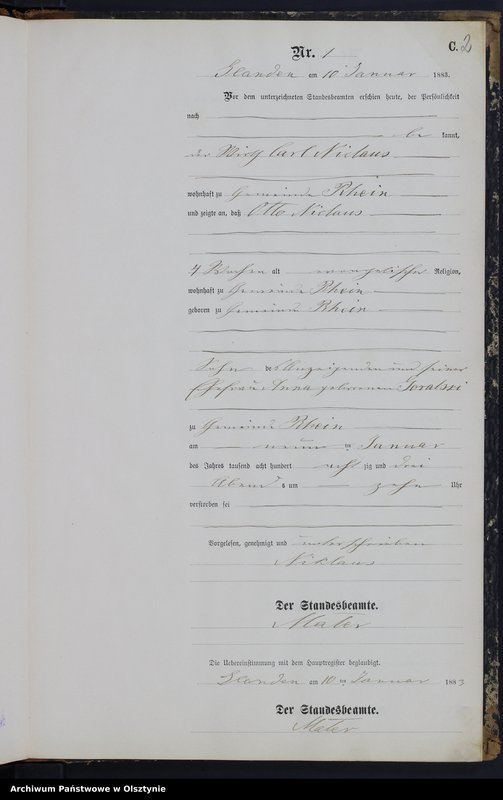 C. 2
Nr. 1
Glanden am 10 Januar 1883.
Vor dem unterzeichneten Standesbeamten erschien heute, der Persönlichkeit
nach
be kannt,
der Wirth Carl Niclaus
wohnhaft zu Gemeinde Rhein
und zeigte an, daß Otto Niclaus
4 Wochen alt evangelischer Religion,
wohnhaft zu Gemeinde Rhein
geboren zu Gemeinde Rhein
Sohn des Anzeigenden und seiner
Ehefrau Anna geborenen
zu Gemeinde Rhein
am neun ten Januar
des Jahres tausend acht hundert acht zig und drei
Abend s um zehn Uhr
verstorben sei
Vorgelesen, genehmigt und unterschrieben
Niklaus
Der Standesbeamte.
Mater
Die Uebereinstimmung mit dem Hauptregister beglaubigt.
Glanden am 10 ten Januar 1883
Der Standesbeamte.
Mater
Archiwum Państwowe w Olsztynie